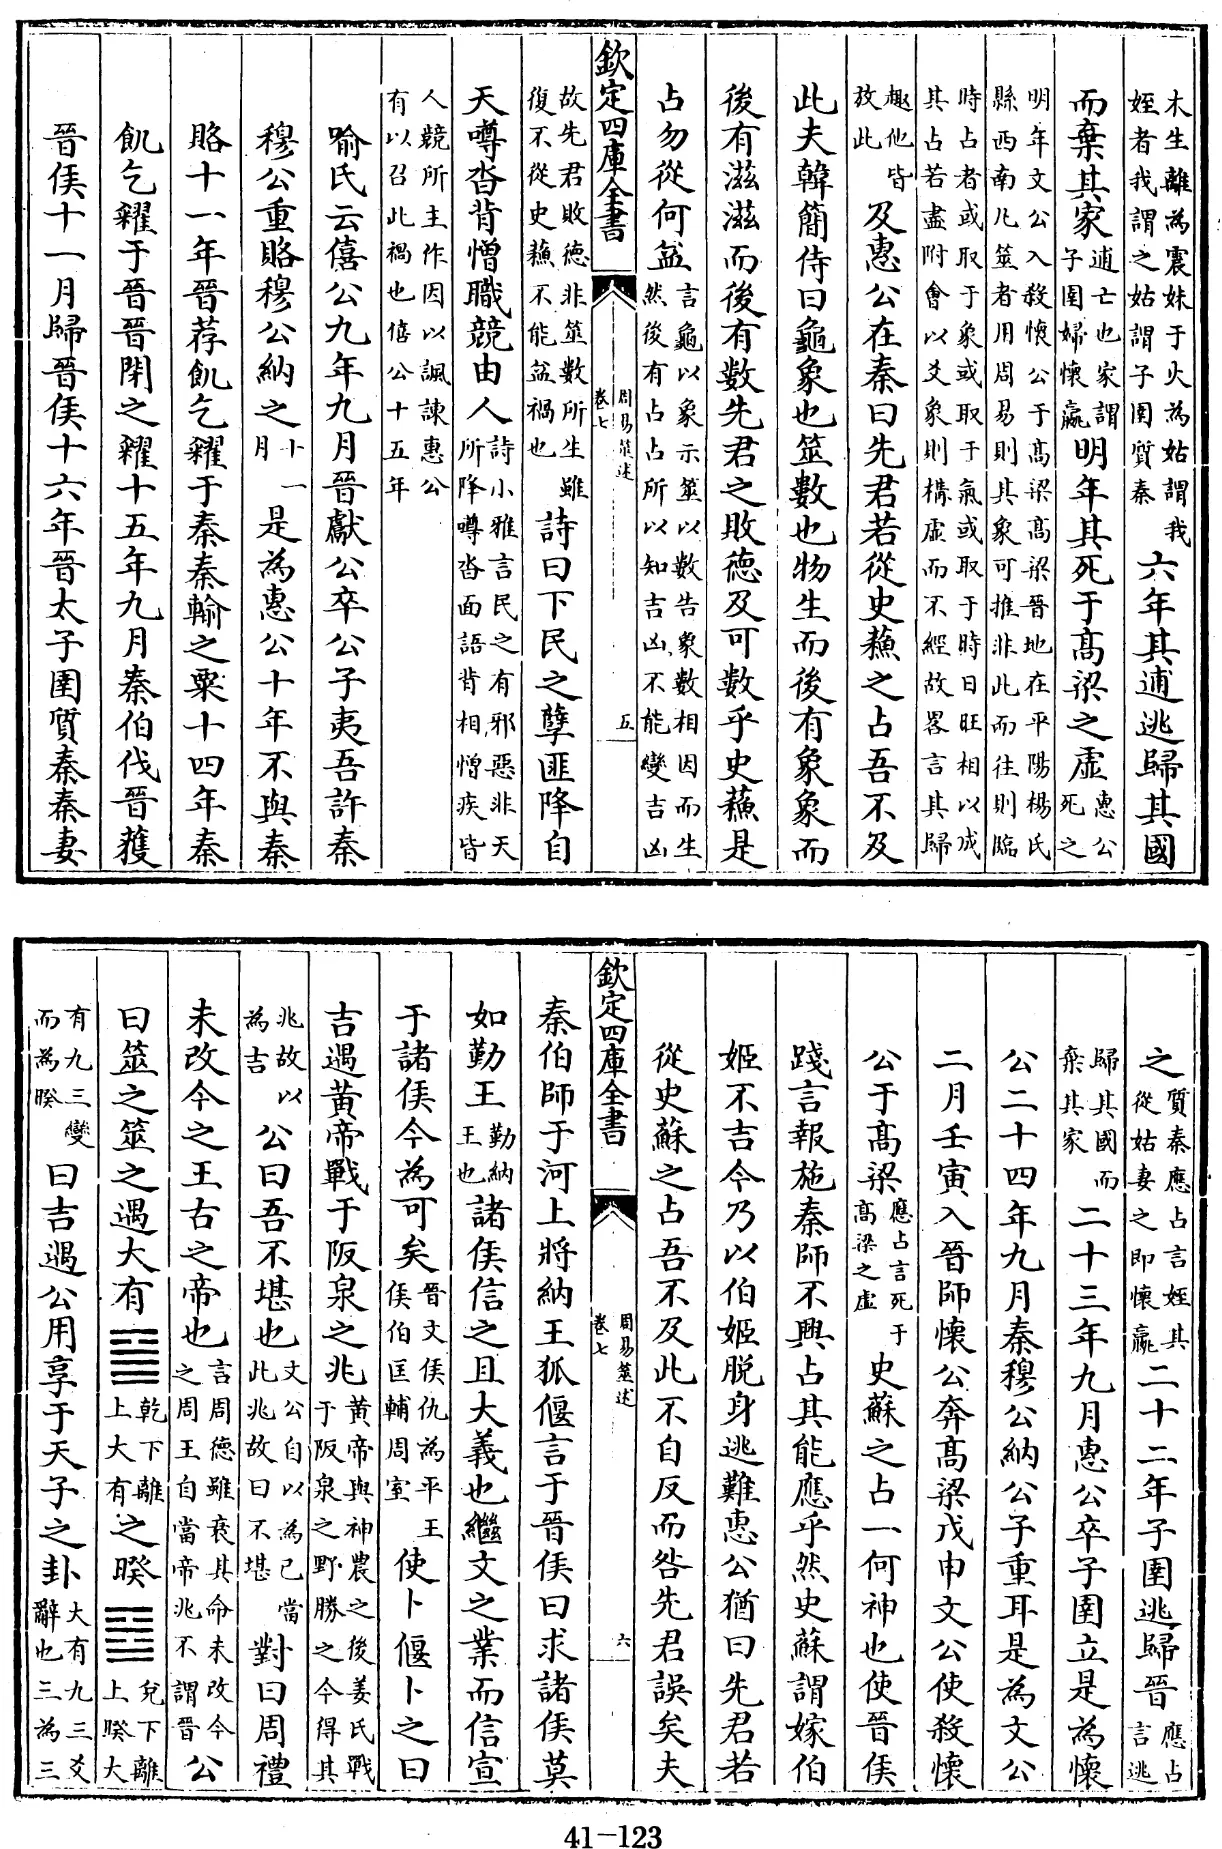 木生離為震妹于火為姑謂我
姪者我謂之姑謂子圉質秦
六年其逋逃歸其國
而棄其家
逋亡也家謂
子圉婦懷嬴
明年其死于高梁之虛
惠公
死之
明年文公入殺懷公于高梁高梁晉地在平陽楊氏
縣西南凡筮者用周易則其象可推非此而往則臨
時占者或取于象或取于氣或取于時日旺相以成
其占若盡附會以爻象則構虛而不經故畧言其歸
趣他皆
放此
及惠公在秦曰先君若從史蘓之占吾不及
此夫韓簡侍曰龜象也筮數也物生而後有象象而
後有滋滋而後有數先君之敗德及可數乎史蘓是
占勿從何益
言龜以象示筮以數告象數相因而生
然後有占占所以知吉凶不能變吉凶
欽定四庫全書
周易筮述
卷七
五
故先君敗德非筮數所生雖
復不從史蘓不能益禍也
詩曰下民之孽匪降自
天噂沓背憎職競由人
詩小雅言民之有邪惡非天
所降噂沓面語背相憎疾皆
人競所主作因以諷諫惠公
有以召此禍也僖公十五年
喻氏云僖公九年九月晉獻公卒公子夷吾許秦
穆公重賂穆公納之
十一
月
是為惠公十年不與秦
賂十一年晉荐飢乞糴于秦秦輸之粟十四年秦
飢乞糴于晉晉閉之糴十五年九月秦伯伐晉獲
晉侯十一月歸晉侯十六年晉太子圉質秦秦妻
之
質秦應占言姪其
從姑妻之即懷嬴
二十二年子圉逃歸晉
應占
言逃
歸其國而
棄其家
二十三年九月惠公卒子圉立是為懷
公二十四年九月秦穆公納公子重耳是為文公
二月壬寅入晉師懷公奔高梁戊申文公使殺懷
公于高梁
應占言死于
高梁之虛
史蘇之占一何神也使晉侯
踐言報施秦師不興占其能應乎然史蘇謂嫁伯
姬不吉今乃以伯姬脫身逃難惠公猶曰先君若
從史蘇之占吾不及此不自反而咎先君誤矣夫
欽定四庫全書
周易筮述
卷七
六
秦伯師于河上將納王狐偃言于晉侯曰求諸侯莫
如勤王
勤納
王也
諸侯信之且大義也繼文之業而信宣
于諸侯今為可矣
晉文侯仇為平王
侯伯匡輔周室
使卜偃卜之曰
吉遇黃帝戰于阪泉之兆
黃帝與神農之後姜氏戰
于阪泉之野勝之今得其
兆故以
為吉
公曰吾不堪也
文公自以為已當
此兆故曰不堪
對曰周禮
未改今之王古之帝也
言周德雖衰其命未改今
之周王自當帝兆不謂晉
公
曰筮之筮之遇大有
乾下離
上大有
之暌
兌下離
上暌大
有九三變
而為暌
曰吉遇公用享于天子之卦
大有九三爻
辭也三為三
41-123